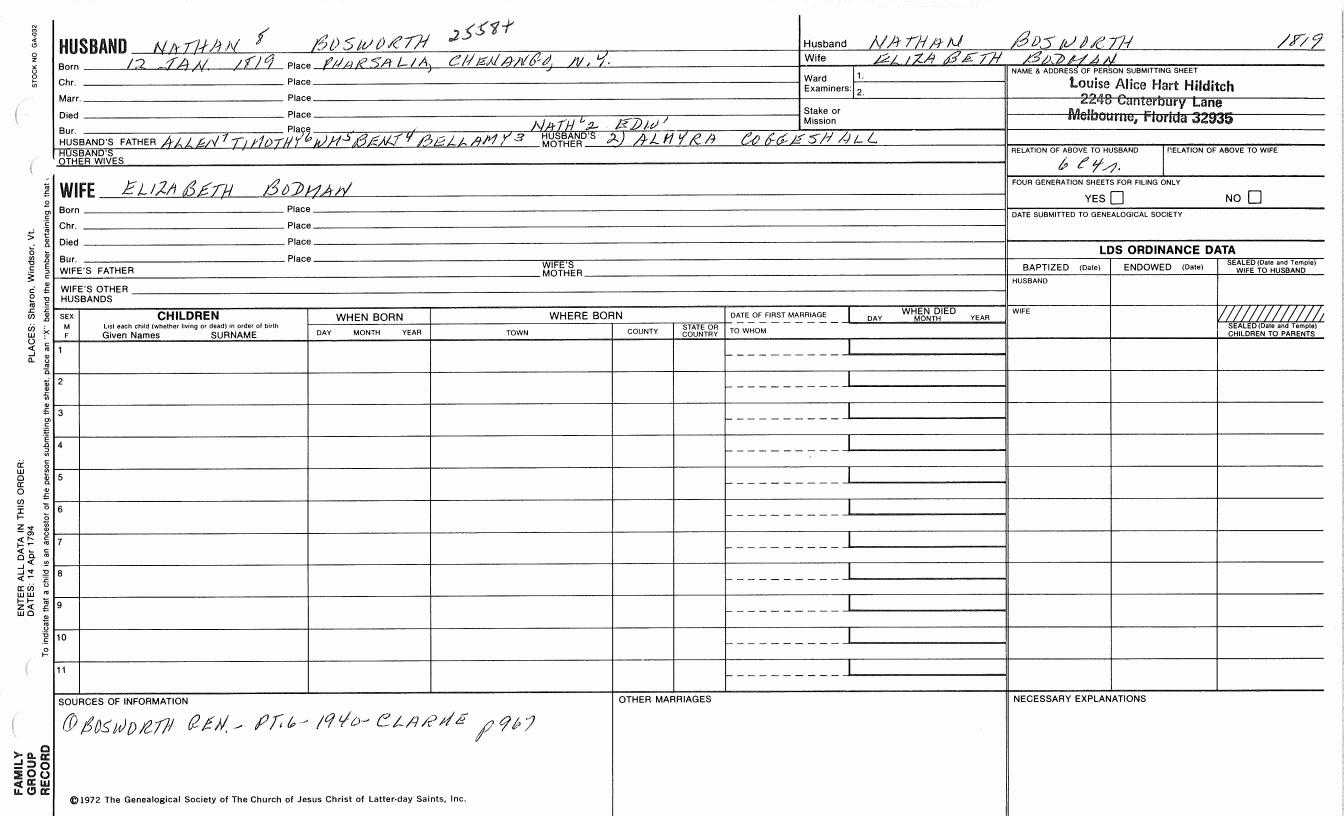 STOCK NO GA-032
HUSBAND NATHAN 8 BOSWORTH 2558+
Born 12 JAN. 1819 Place PHARSALIA, CHENANGO, N.Y.
Chr. Place
Marr. Place
Died Place
Bur. Place
NATH'L2 EDW'
HUSBAND'S FATHER ALLEN7 TIMOTHY6 WM5 BENJ4 BELLAMY3 HUSBAND'S MOTHER 2) ALMYRA COGGESHALL
HUSBAND'S OTHER WIVES
Husband NATHAN BOSWORTH 1819
Wife ELIZABETH BODMAN
Ward Examiners: 1.
2.
Stake or Mission
NAME & ADDRESS OF PERSON SUBMITTING SHEET
Louise Alice Hart Hilditch
2248 Canterbury Lane
Melbourne, Florida 32935
RELATION OF ABOVE TO HUSBAND RELATION OF ABOVE TO WIFE
6 C 4 r.
FOUR GENERATION SHEETS FOR FILING ONLY
YES NO
DATE SUBMITTED TO GENEALOGICAL SOCIETY
WIFE ELIZABETH BODMAN
Born Place
Chr. Place
Died Place
Bur. Place
WIFE'S FATHER WIFE'S MOTHER
WIFE'S OTHER HUSBANDS
LDS ORDINANCE DATA
BAPTIZED (Date) ENDOWED (Date) SEALED (Date and Temple) WIFE TO HUSBAND
HUSBAND
WIFE
SEALED (Date and Temple) CHILDREN TO PARENTS
SEX M F
CHILDREN
List each child (whether living or dead) in order of birth
Given Names SURNAME
WHEN BORN
DAY MONTH YEAR
WHERE BORN
TOWN COUNTY STATE OR COUNTRY
DATE OF FIRST MARRIAGE
TO WHOM
WHEN DIED
DAY MONTH YEAR
1
2
3
4
5
6
7
8
9
10
11
SOURCES OF INFORMATION
① BOSWORTH GEN. - PT. 6 - 1940 - CLARKE p967
OTHER MARRIAGES
NECESSARY EXPLANATIONS
©1972 The Genealogical Society of The Church of Jesus Christ of Latter-day Saints, Inc.
ENTER ALL DATA IN THIS ORDER:
DATES: 14 Apr 1794 PLACES: Sharon, Windsor, Vt.
To indicate that a child is an ancestor of the person submitting the sheet, place an "X" behind the number pertaining to that
FAMILY
GROUP
RECORD